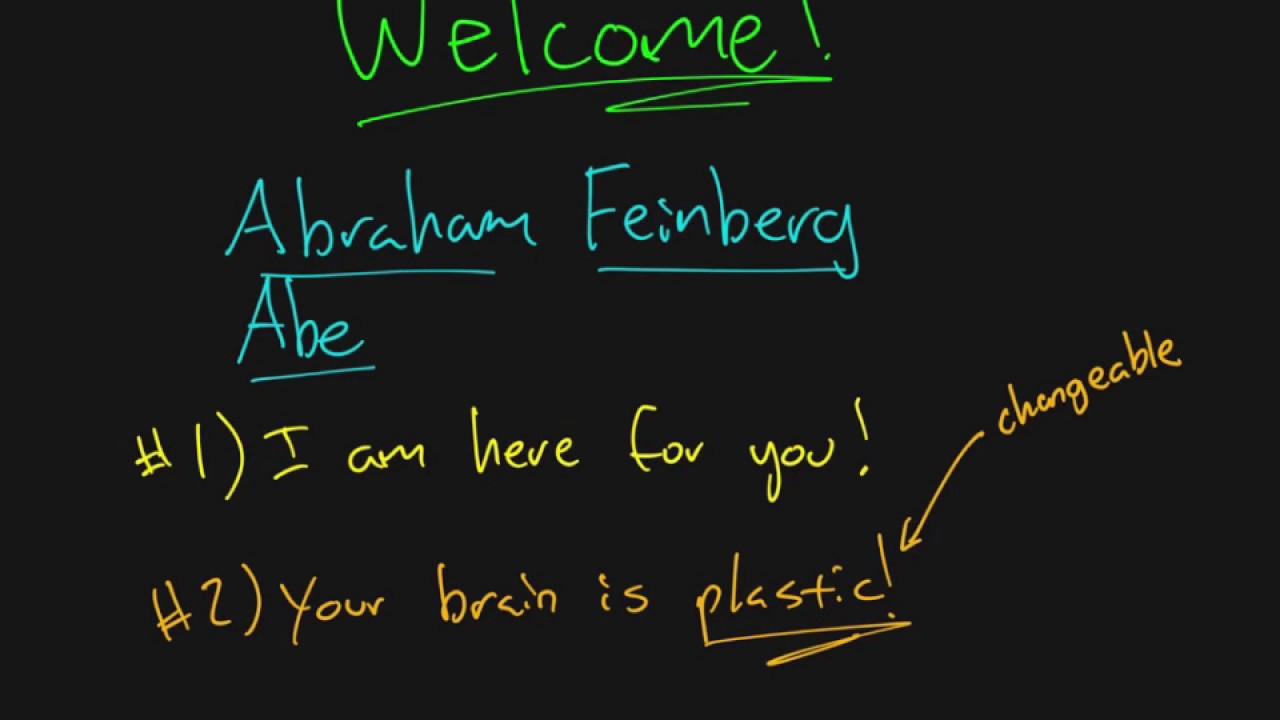 Welcome!
Abraham Feinberg
Abe
changeable
#1) I am here for you!
#2) Your brain is plastic!